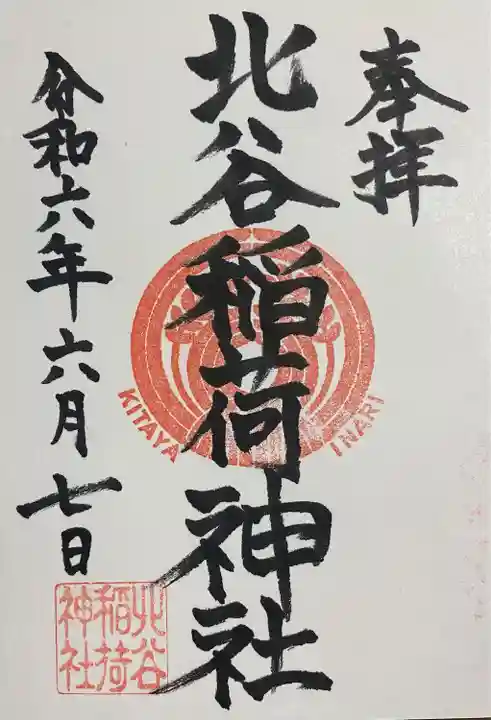 奉拝
北谷稲荷神社
令和六年六月七日
KITAYA INARI
北谷
稲荷
神社